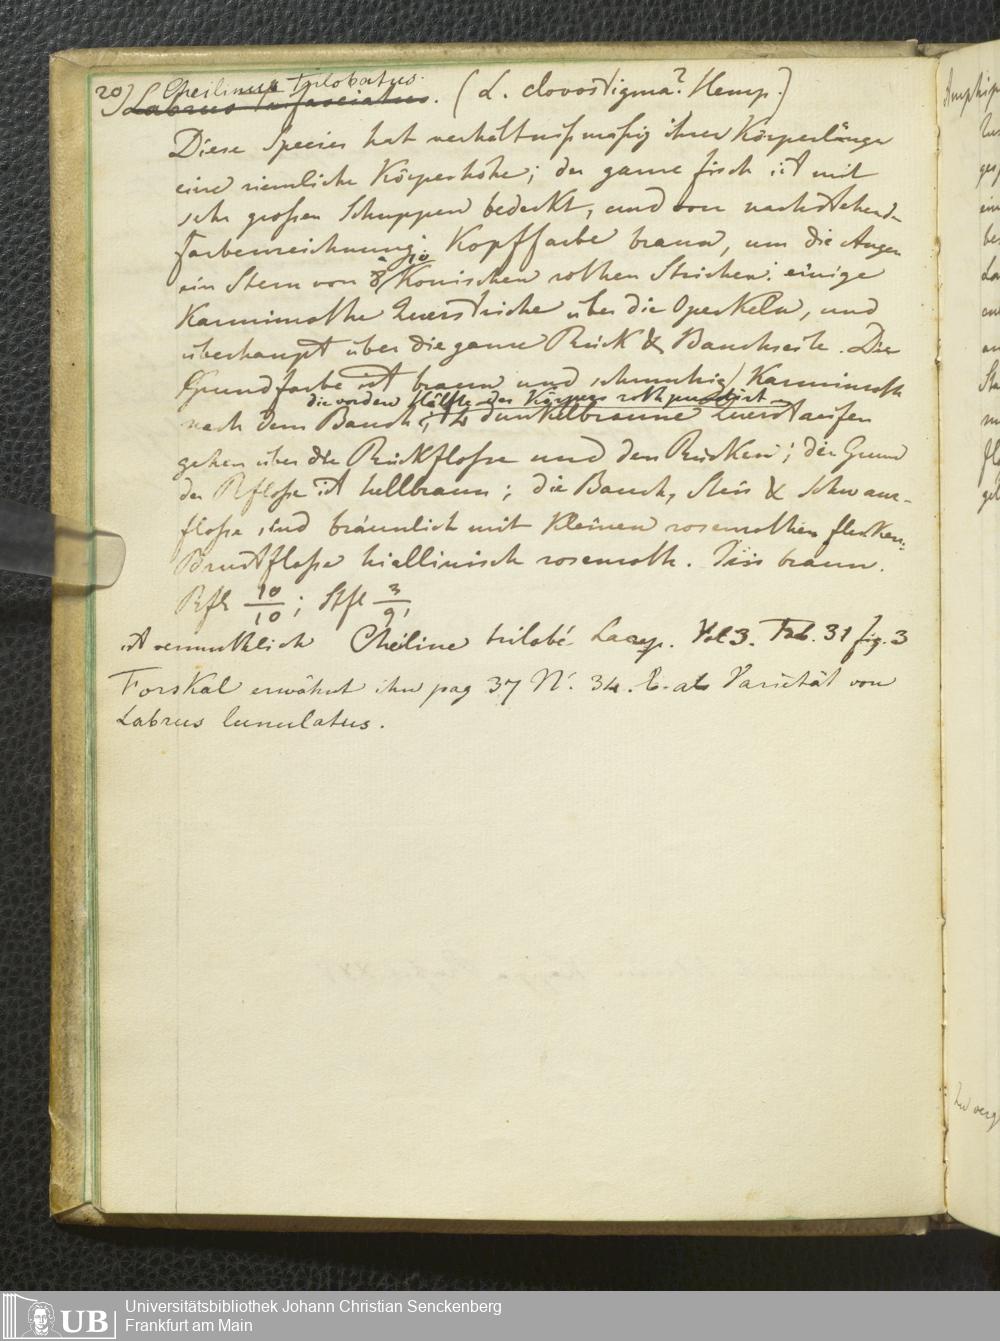 Cheilinus Trilobatus.
20) Labrus fasciatus. (L. clovostigma? Hemp.)
Diese Species hat verhältnißmäßig ihrer Körperlänge
eine ziemliche Körperhöhe; der ganze fisch ist mit
sehr großen Schuppen bedeckt, und von nachstehend-
farbenzeichnung: Kopffarbe braun, um die Augen
a 10
ein Stern von 8 Konischen rothen Strichen: einige
Karminrothe Querstriche über die Operkeln, und
überhaupt über die ganze Rück & Bauchseite. Die
Grundfarbe ist braun und schmutzig Karminroth
die vordere Hälfte des Körpers roth punctirt
nach dem Bauch; 4 dunkelbraune Querstraifen
gehen über die Rückflosse und den Rücken; der Grund
der Rflosse ist hellbraun; die Bauch, Steis & Schwanz-
flosse sind bräunlich mit Kleinen rosenrothen flecken:
Brustflosse hiallinisch rosenroth. Iris braun.
Rfl 10/10; Stfl 3/9,
ist vermuthlich Cheiline trilobé Lacep. Vol 3. Tab. 31 fig. 3
Forskal erwähnt ihn pag 37 N. 34. als Varietät von
Labrus lunulatus.
Universitätsbibliothek Johann Christian Senckenberg
UB Frankfurt am Main